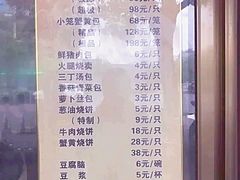 (超级) 98元/只
小笼蟹黄包 68元/笼
(精品) 128元/笼
(极品) 198元/笼
鲜猪肉包 6元/只
火腿烧卖 4元/只
三丁汤包 4元/只
香菇青菜包 3元/只
萝卜丝包 3元/只
葱油烧饼 5元/只
(特制) 9元/只
牛肉烧饼 18元/只
蟹黄烧饼 28元/只
38元/只
豆腐脑 6元/碗
豆浆 5元/杯